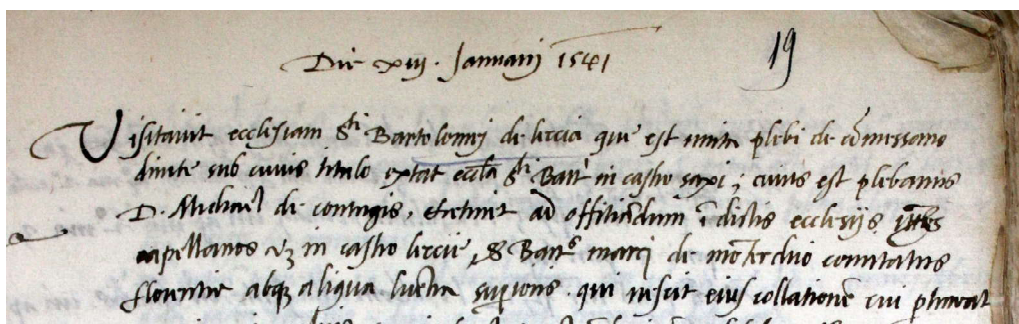 Die xiij. Januarij 1541 19
Visitavit ecclesiam Sti Bartolomej de leccia que est unita plebi de
dirute sub cuius titulo extat eccla Sti Bart in castro saxi; cuius est plebanus
D. Michael de contugis, et retinet ad offitiandum in dictis ecclesijs
capellanos vz in castro leccie, S Barts marci de comitatus
florentie absq aliqua licentia qui nescit eius collatione cui